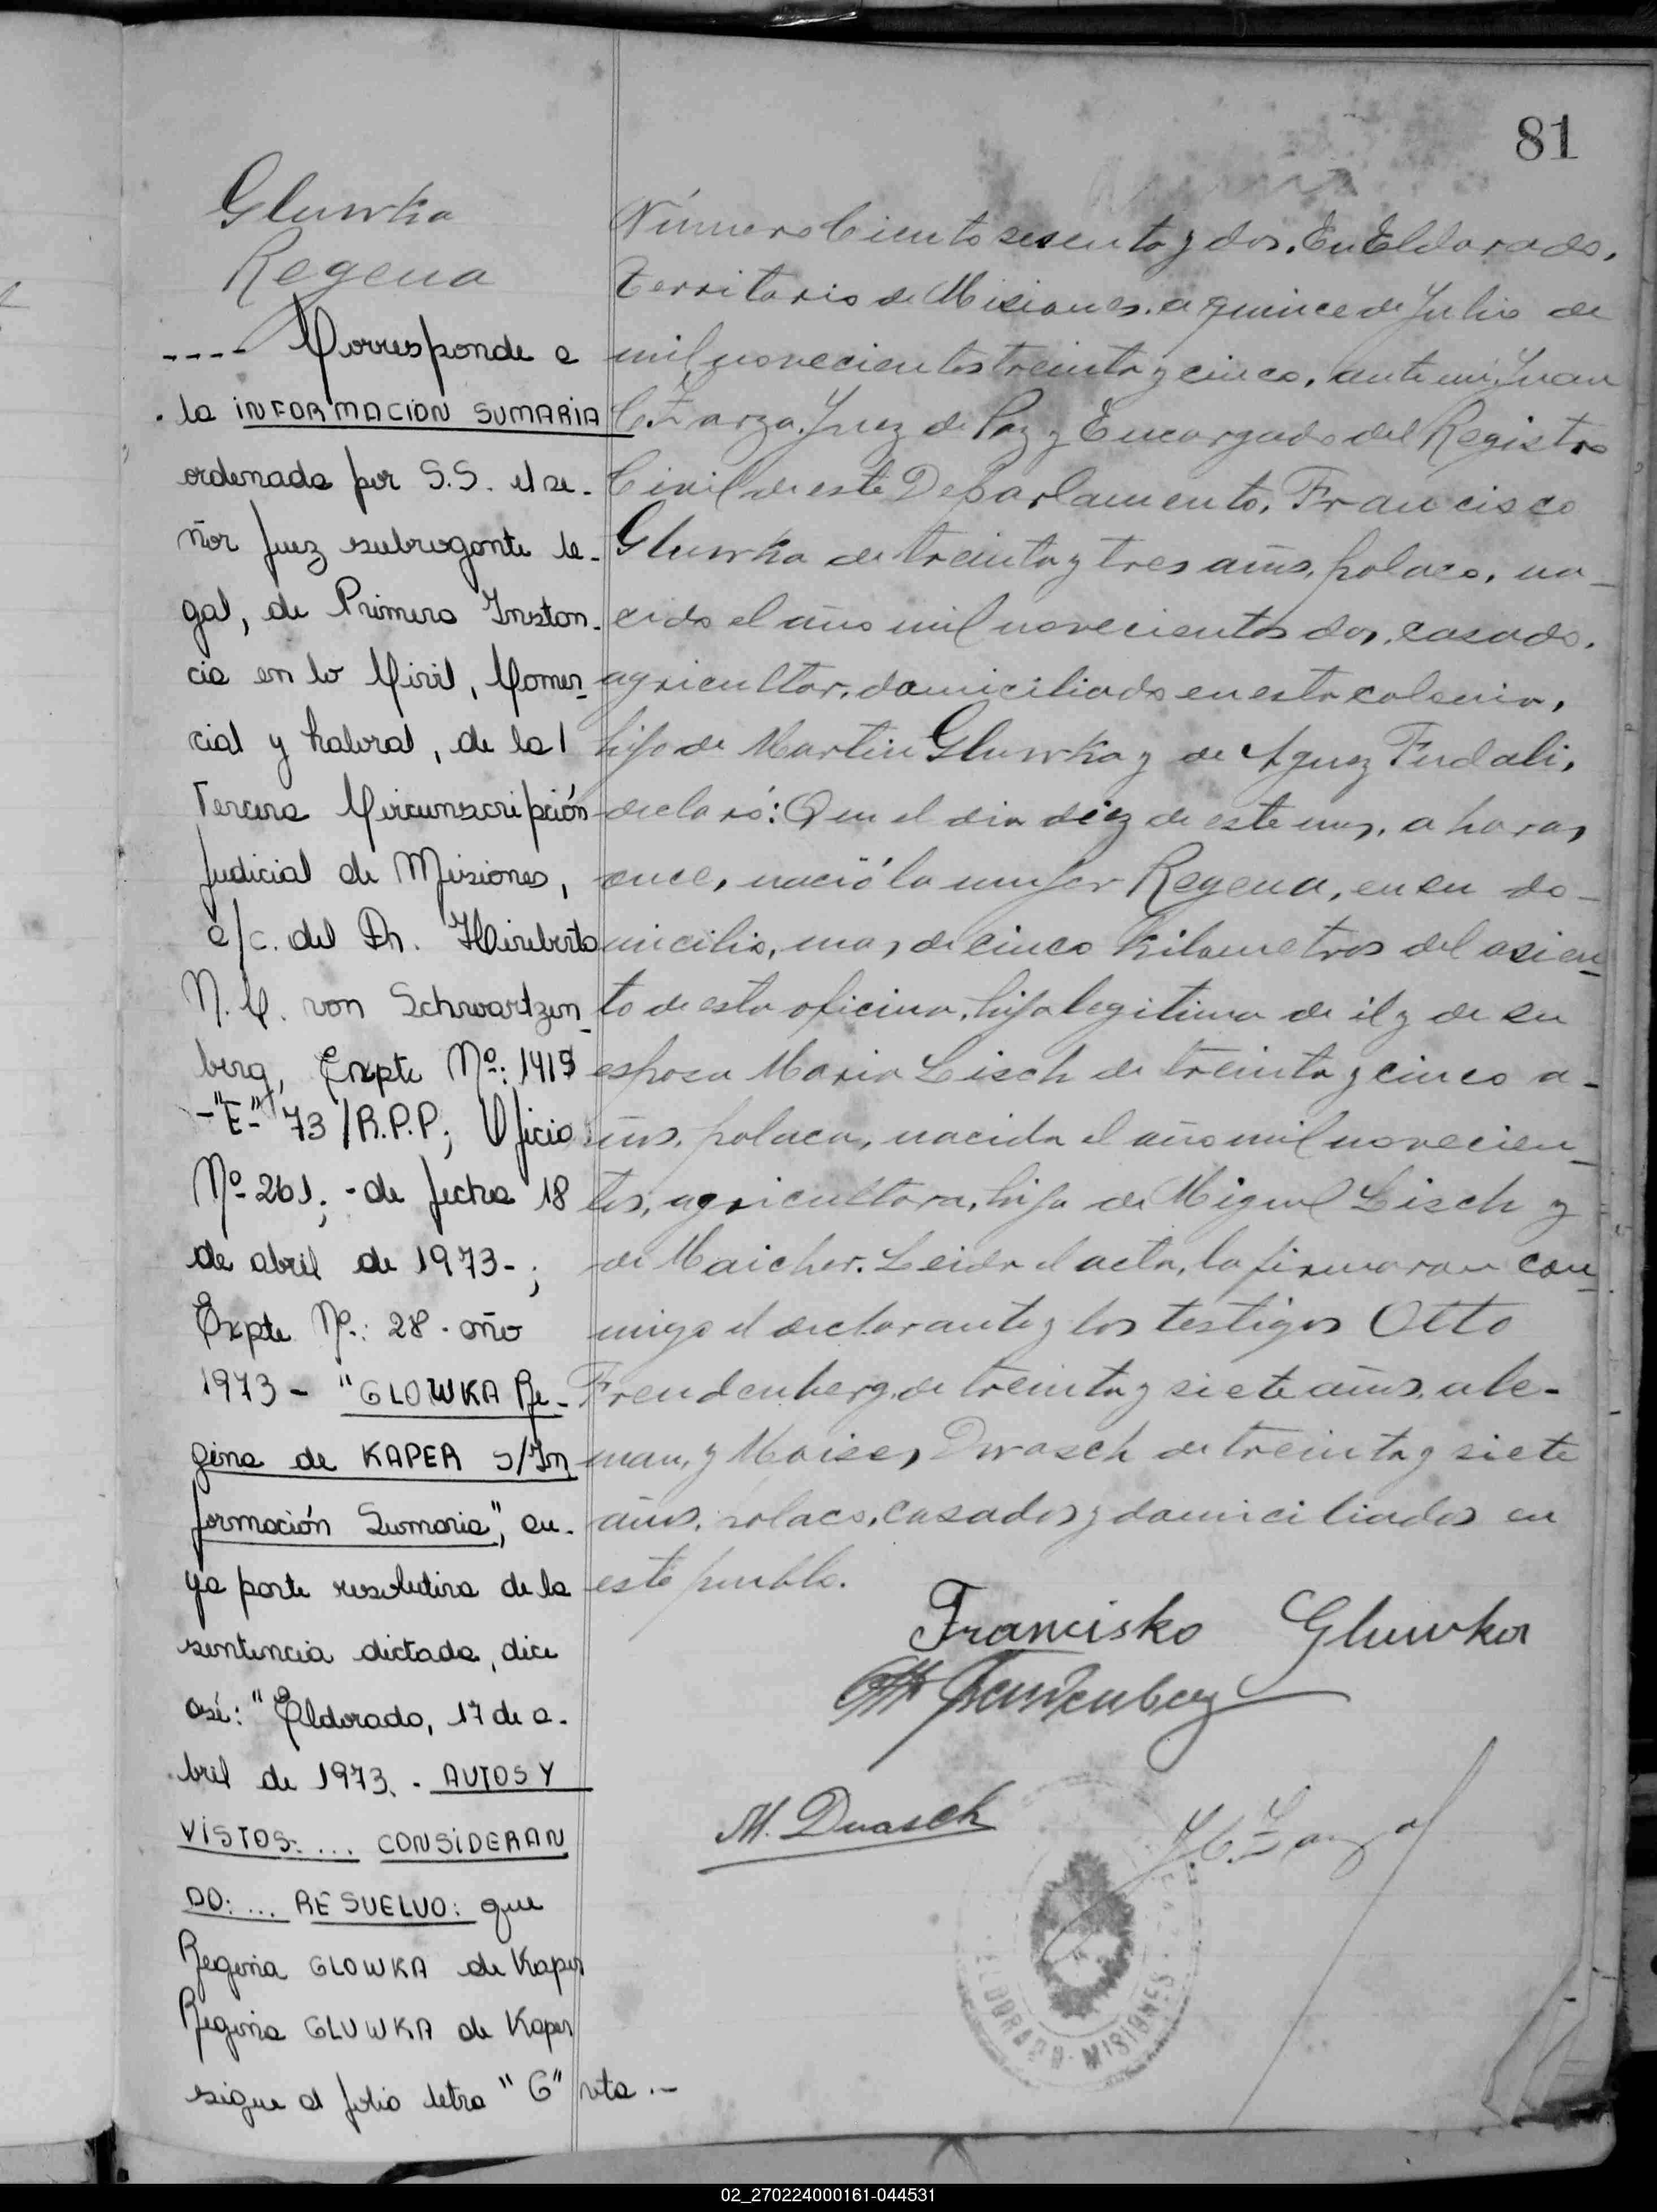 81
Gluwka
Regena
---- Corresponde a
la INFORMACION SUMARIA
ordenada por S.S. el se-
ñor Juez subrogante le-
gal, de Primera Instan-
cia en lo Civil, Comer-
cial y Laboral, de la
Tercera Circunscripción
Judicial de Misiones,
a/c. del Dr. Heriberto
N. C. von Schwartzen-
berg, Expte Nº: 1419
-"E"- 73/R.P.P; Oficio
Nº 261; -de fecha 18
de abril de 1973-;
Expte Nº: 28 - año
1973 - "GLOWKA Re-
gina de KAPER s/In
formación Sumaria", cu-
ya parte resolutiva de la
sentencia dictada, dice
así: "Eldorado, 17 de a-
bril de 1973. - AUTOS Y
VISTOS: ... CONSIDERAN
DO: ... RESUELVO: que
Regina GLOWKA de Kaper
Regina GLUWKA de Kaper
sigue al folio letra "G" vta .-
Número Ciento sesenta y dos. En Eldorado,
Territorio de Misiones, a quince de Julio de
mil novecientos treinta y cinco, ante mi, Juan
C. Zarza, Juez de Paz y Encargado del Registro
Civil de este Departamento, Francisco
Gluwka de treinta y tres años, polaco, na-
cido el año mil novecientos dos, casado,
agricultor, domiciliado en esta colonia,
hijo de Martin Gluwka y de Agnez Fudali,
declaró: Que el dia diez de este mes, a horas
once, nació la mujer Regena, en su do-
micilio, mas de cinco kilometros del asien-
to de esta oficina, hija legitima de él y de su
esposa Maria Lisch de treinta y cinco a-
ños, polaca, nacida el año mil novecien-
tos, agricultora, hija de Miguel Lisch y
de Maicher. Leida el acta, la firmaron con
migo el declarante y los testigos Otto
Freudenberg, de treinta y siete años, ale-
man, y Moises Dwasch de treinta y siete
años, polaco, casados y domiciliados en
este pueblo.
Francisko Gluwka
Otto Freudenberg
M. Dwasch
J. C. Zarza
ELDORADO - MISIONES
02_270224000161-044531